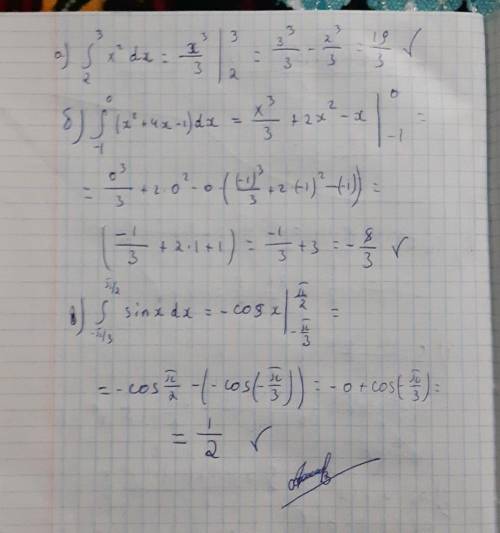 а) ∫₂³ x² dx = x³/3 |₂³ = 3³/3 - 2³/3 = 19/3 ✓
б) ∫₋₁⁰ (x²+4x-1)dx = x³/3 + 2x² - x |₋₁⁰ =
= 0³/3 + 2·0² - 0 - ((-1)³/3 + 2·(-1)² - (-1)) =
(-1/3 + 2·1 + 1) = -1/3 + 3 = -8/3 ✓
в) ∫_{-π/3}^{π/2} sinx dx = -cos x |_{-π/3}^{π/2} =
= -cos π/2 - (-cos(-π/3)) = -0 + cos(-π/3) =
= 1/2 ✓